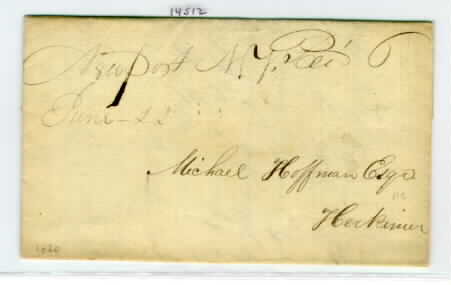 14512
Newport N.Y. Paid 6
June - 22
Michael Hoffman Esqr
Herkimer